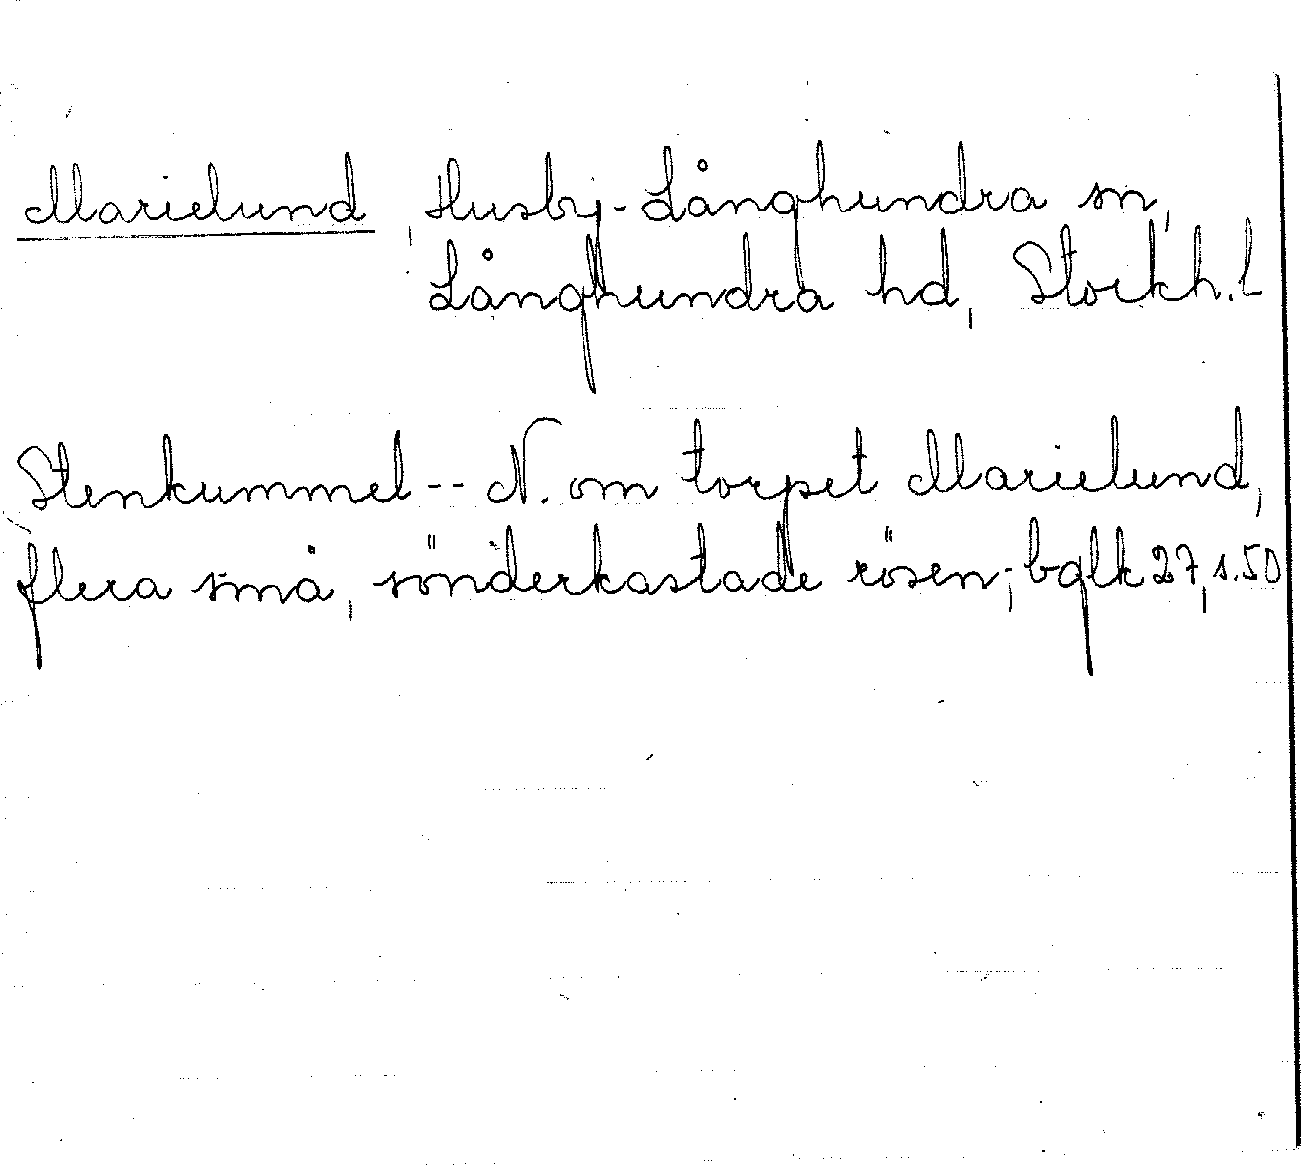 Marielund, Husby-Långhundra sn,
Långhundra hd, Stockh. L
Stenkummel -- N. om torpet Marielund,
flera små, sönderkastade rösen; bglk 27, s. 50